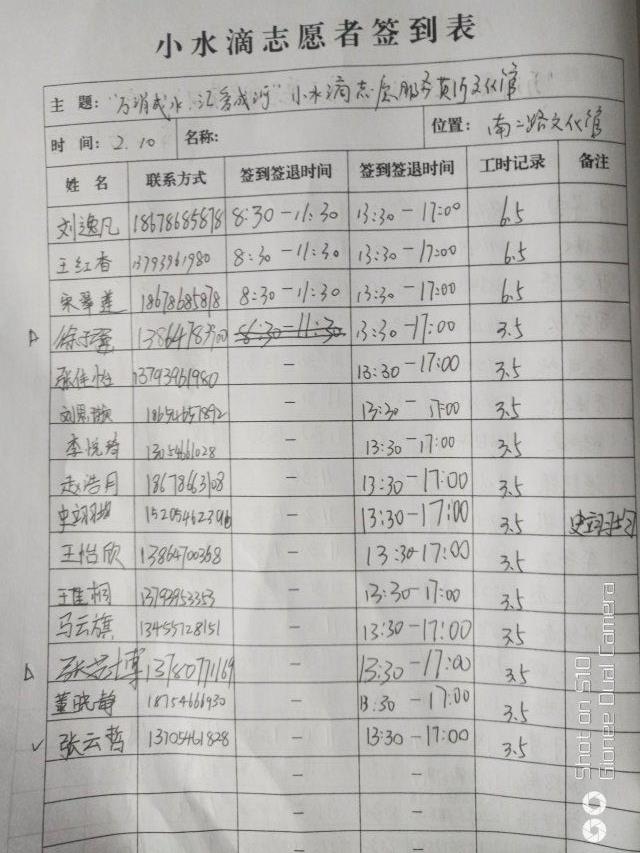 小水滴志愿者签到表
主 题: "万涓成水 汇多成河" 小水滴志愿服务黄河文化馆
时 间: 2.10 名称: 位置: 南二路文化馆
姓 名 联系方式 签到签退时间 签到签退时间 工时记录 备注
刘逸凡 18678685878 8:30-11:30 13:30-17:00 6.5
王红香 13793961980 8:30-11:30 13:30-17:00 6.5
宋翠莲 18678685878 8:30-11:30 13:30-17:00 6.5
徐 8:30-11:30 13:30-17:00 3.5
张佳怡 13793961980 - 13:30-17:00 3.5
刘思 18654657892 - 13:30-17:00 3.5
李悦琦 13054661028 - 13:30-17:00 3.5
赵浩月 18678663108 - 13:30-17:00 3.5
史翊 - 13:30-17:00 3.5 史翊
王怡欣 13864700368 - 13:30-17:00 3.5
王佳桐 13793953353 - 13:30-17:00 3.5
马云旗 13455728151 - 13:30-17:00 3.5
张 博 13780771169 - 13:30-17:00 3.5
董晓静 18754666930 - 13:30-17:00 3.5
✓ 张云哲 13705461828 - 13:30-17:00 3.5
-
-
-
Shot on S10
Gionee Dual Camera